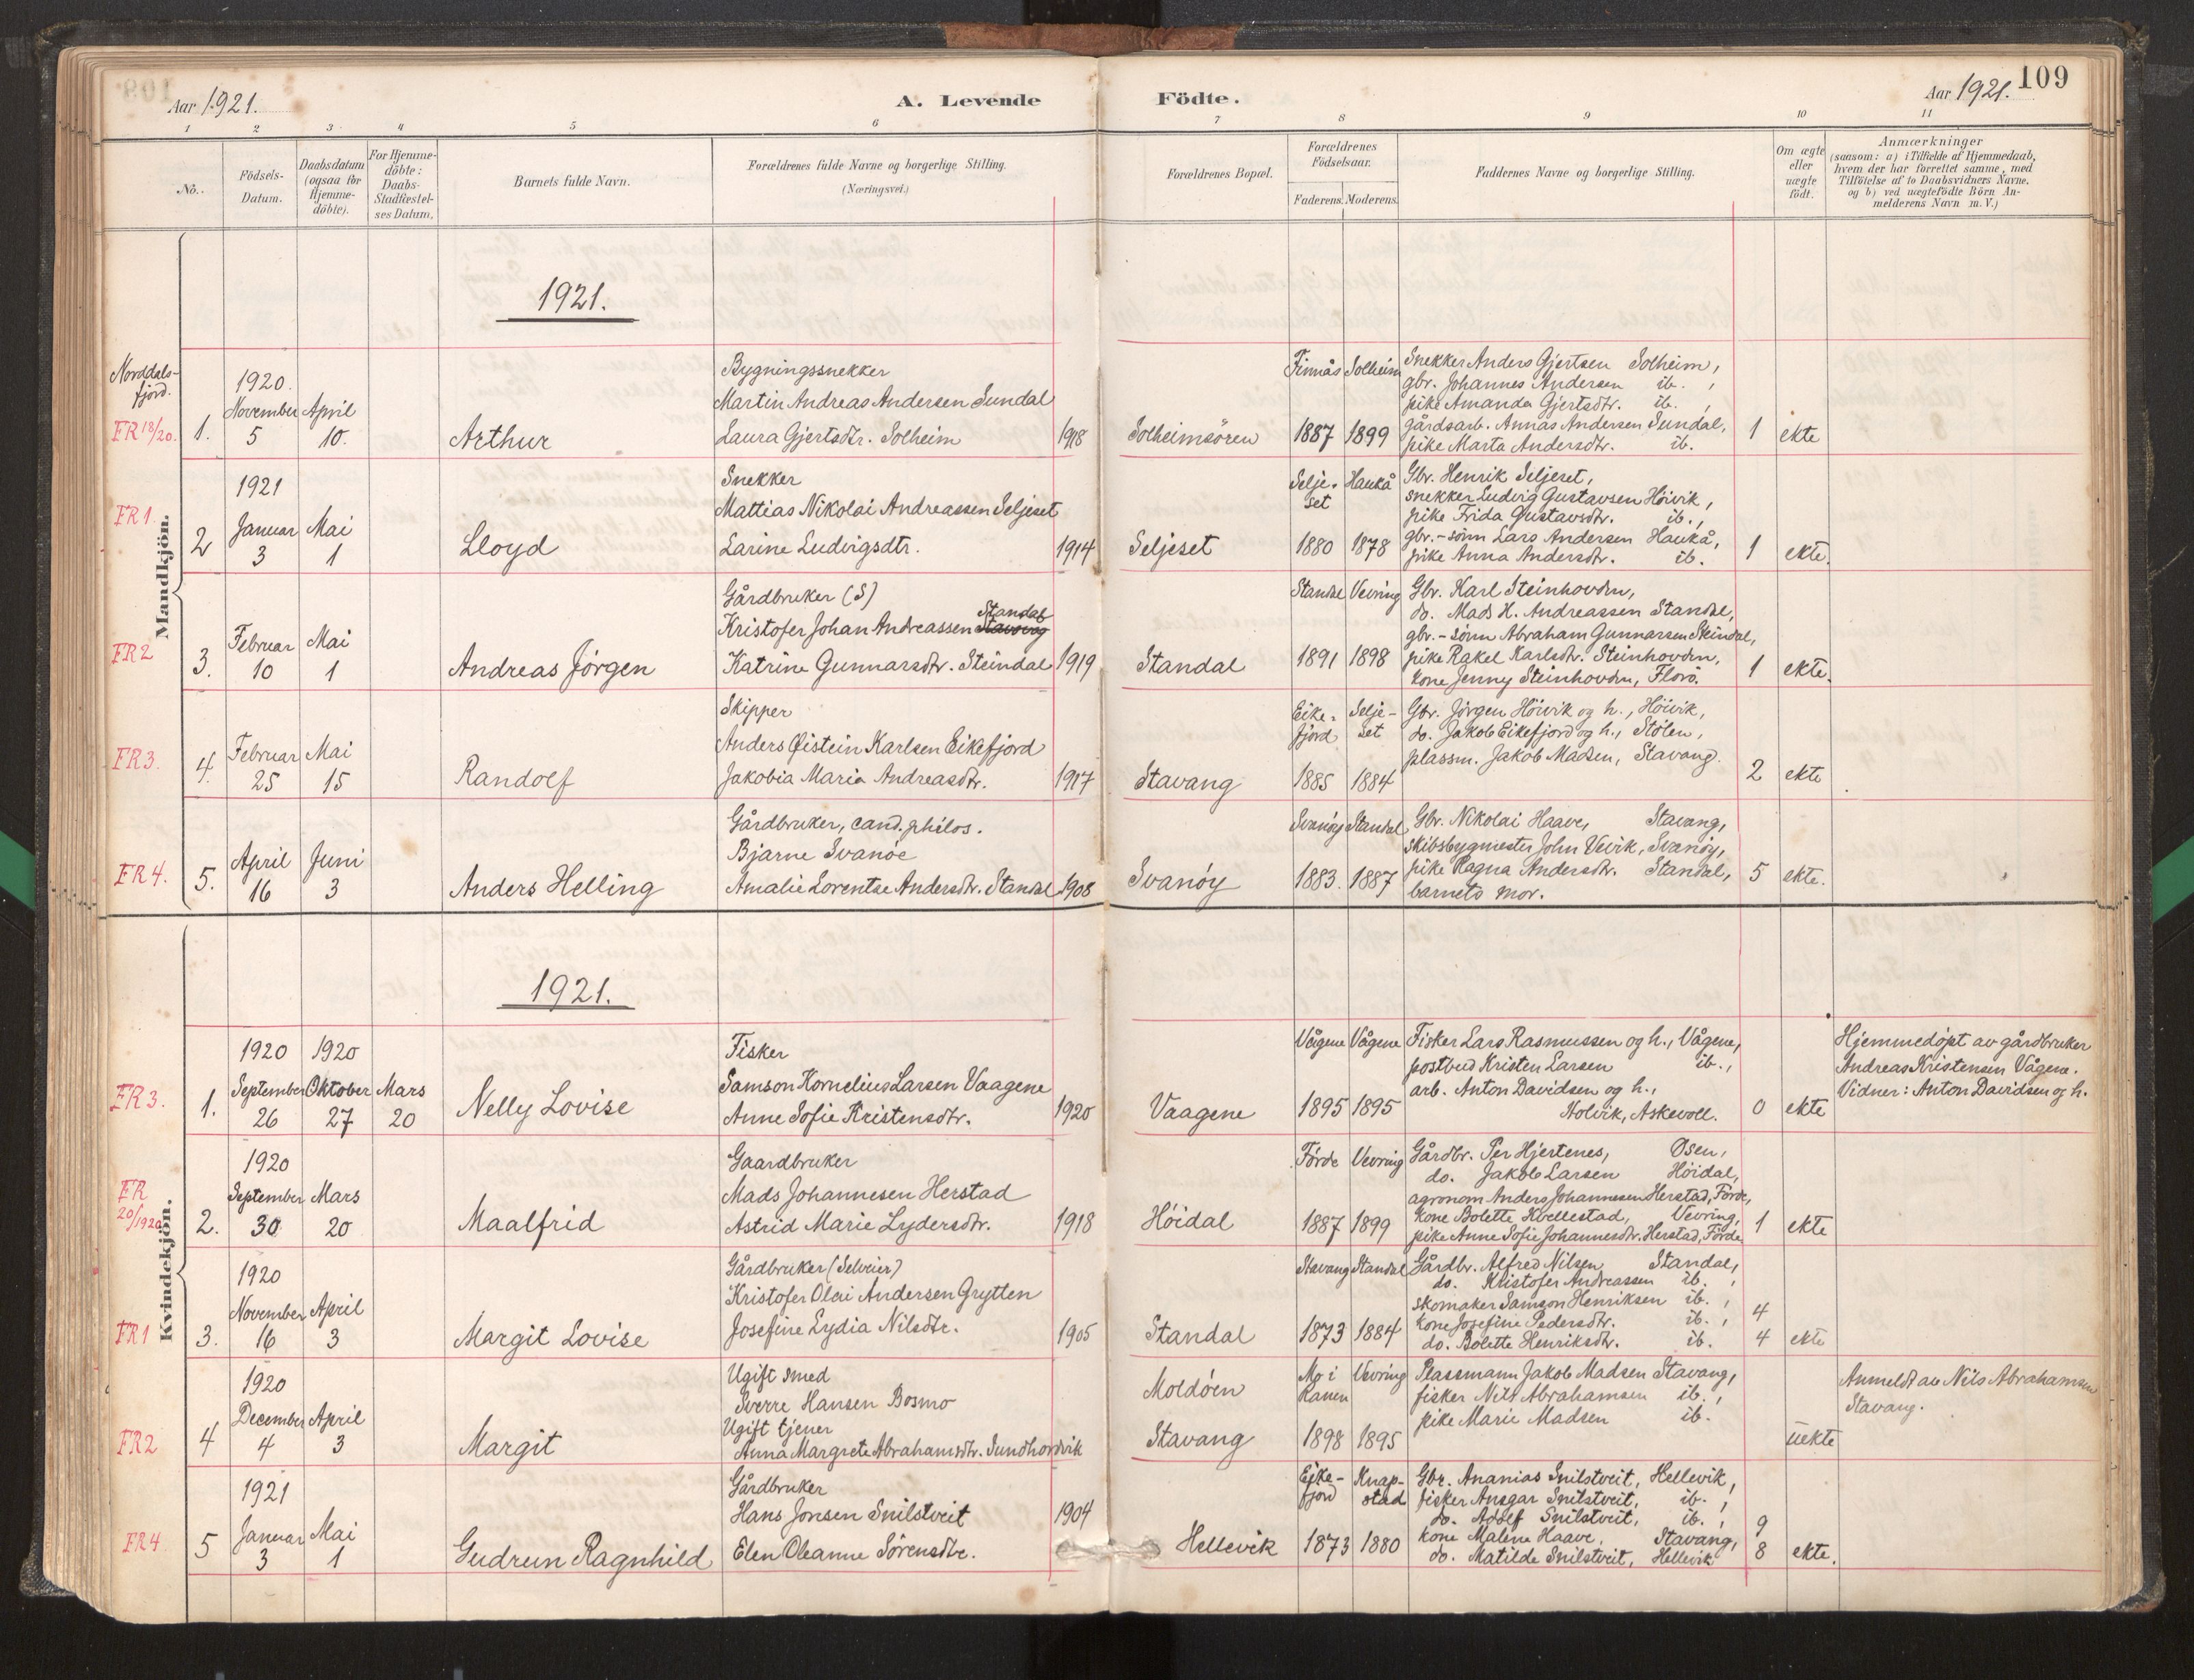 Aar 1921.
A. Levende Födte.
Aar 1921.
109
1 2 3 4 5 6 7 8 9 10 11
No.
Födsels-
Datum.
Daabsdatum
(ogsaa for
Hjemme-
döbte).
For Hjemme-
döbte:
Daabs-
Stadfæstel-
ses Datum.
Barnets fulde Navn.
Forældrenes fulde Navne og borgerlige Stilling.
(Næringsvei.)
Forældrenes Bopæl.
Forældrenes
Födselsaar.
Faderens. Moderens.
Faddernes Navne og borgerlige Stilling.
Om ægte
eller
uægte
födt.
Anmærkninger
(saasom: a) i Tilfælde af Hjemmedaab,
hvem der har forrettet samme, med
Tilföielse af to Daabsvidners Navne.
og b) ved uægtefödte Börn An-
melderens Navn m. V.)
Mandkjön.
1921.
Norddals-
fjord.
FR 18/20.
1.
1920.
November
5
April
10.
Arthur
Bygningssnekker
Martin Andreas Andersen Sundal
Laura Gjertsdtr. Solheim
1918
Solheimsören
Finnås Solheim
1887 1899
Snekker Anders Gjertsen Solheim,
gbr. Johannes Andersen ib.,
pike Amanda Gjertsdtr. ib.,
gårdsarb. Annas Andersen Sundal,
pike Marta Andersdtr. ib.
1
ekte
FR 1.
2
1921
Januar
3
Mai
1
Lloyd
Snekker
Mattias Nikolai Andreassen Seljeset
Larine Ludvigsdtr.
1914
Seljeset
Selje-
set
Haukå
1880 1878
Gbr. Henrik Seljeset,
snekker Ludvig Gustavsen Höivik,
pike Frida Gustavsdtr. ib.,
gbr.-sönn Lars Andersen Haukå,
pike Anna Andersdtr. ib.
1
ekte.
FR 2
3.
Februar
10
Mai
1
Andreas Jörgen
Gårdbruker (S)
Standal
Kristofer Johan Andreassen Stavang
Katrine Gunnarsdtr. Steindal
1919
Standal
Standal Vevring
1891 1898
Gbr. Karl Steinhovden,
do. Mads H. Andreassen Standal,
gbr.-sönn Abraham Gunnarsen Steindal,
pike Rakel Karlsdtr. Steinhovden,
kone Jenny Steinhovden, Florö.
1
ekte.
FR 3.
4.
Februar
25
Mai
15
Randolf
Skipper
Anders Øistein Karlsen Eikefjord
Jakobia Maria Andreasdtr.
1917
Stavang
Eike-
fjord
Selje-
set
1885 1884
Gbr. Jörgen Höivik og h., Höivik,
do. Jakob Eikefjord og h., Stölen,
plassm. Jakob Madsen, Stavang.
2
ekte
FR 4.
5.
April
16
Juni
3
Anders Helling
Gårdbruker, cand. philos.
Bjarne Svanöe
Amalie Lorentse Andersdtr. Standal
1908
Svanöy
Svanöy Standal
1883. 1887
Gbr. Nikolai Haave, Stavang,
skibsbygmester John Veivik, Svanöy,
pike Ragna Andersdtr. Standal,
barnets mor.
5
ekte.
Kvindekjön.
1921.
FR 3.
1.
1920
September
26
1920
Oktober
27
Mars
20
Nelly Lovise
Fisker
Samson Kornelius Larsen Vaagene
Anne Sofie Kristensdtr.
1920
Vaagene
Vågene Vågene
1895 1895
Fisker Lars Rasmussen og h., Vågene,
postbud Kristen Larsen ib.,
arb. Anton Davidsen og h.,
Holvik, Askevoll.
0
ekte
Hjemmedöpt av gårdbruker
Andreas Kristensen Vågene.
Vidner: Anton Davidsen og h.
FR
20/1920
2.
1920
September
30
Mars
20
Maalfrid
Gaardbruker
Mads Johannesen Herstad
Astrid Marie Lydersdtr.
1918
Höidal
Förde Vevring
1887 1899
Gårdbr. Per Hjertenes, Osen,
do. Jakob Larsen Höidal,
agronom Anders Johannesen Herstad, Förde,
kone Bolette Kvellestad, Vevring,
pike Anne Sofie Johannesdtr. Herstad, Förde
1
ekte
FR 1
3.
1920
November
16
April
3
Margit Lovise
Gårdbruker (Selveier)
Kristofer Olai Andersen Grytten
Josefine Lydia Nilsdtr.
1905
Standal
Stavang Standal
1873 1884
Gårdbr. Alfred Nilsen Standal,
do. Kristofer Andreassen ib.,
skomaker Samson Henriksen ib.,
kone Josefine Pedersdtr. ib.,
do. Bolette Henriksdtr. ib.
4
4
ekte
FR 2
4
1920
December
4
April
3
Margit
Ugift smed
Sverre Hansen Bosmo
Ugift tjener
Anna Margrete Abrahamsdtr. Sundhordvik
Moldöen
Stavang
Mo i
Ranen
Vevring
1898 1895
Plassmann Jakob Madsen Stavang,
fisker Nils Abrahamsen ib.,
pike Marie Madsen ib.
uekte
Anmeldt av Nils Abrahamsen
Stavang.
FR 4
5
1921
Januar
3
Mai
1
Gudrun Ragnhild
Gårdbruker
Hans Jonsen Snilstveit
Elen Oleanne Sörensdtr.
1904
Hellevik
Eike-
fjord
Knap-
stad
1873 1880
Gbr. Ananias Snilstveit, Hellevik,
fisker Ansgar Snilstveit, ib.,
do. Adolf Snilstveit, ib.,
kone Malene Haave, Stavang,
do. Matilde Snilstveit, Hellevik
9
8
ekte.